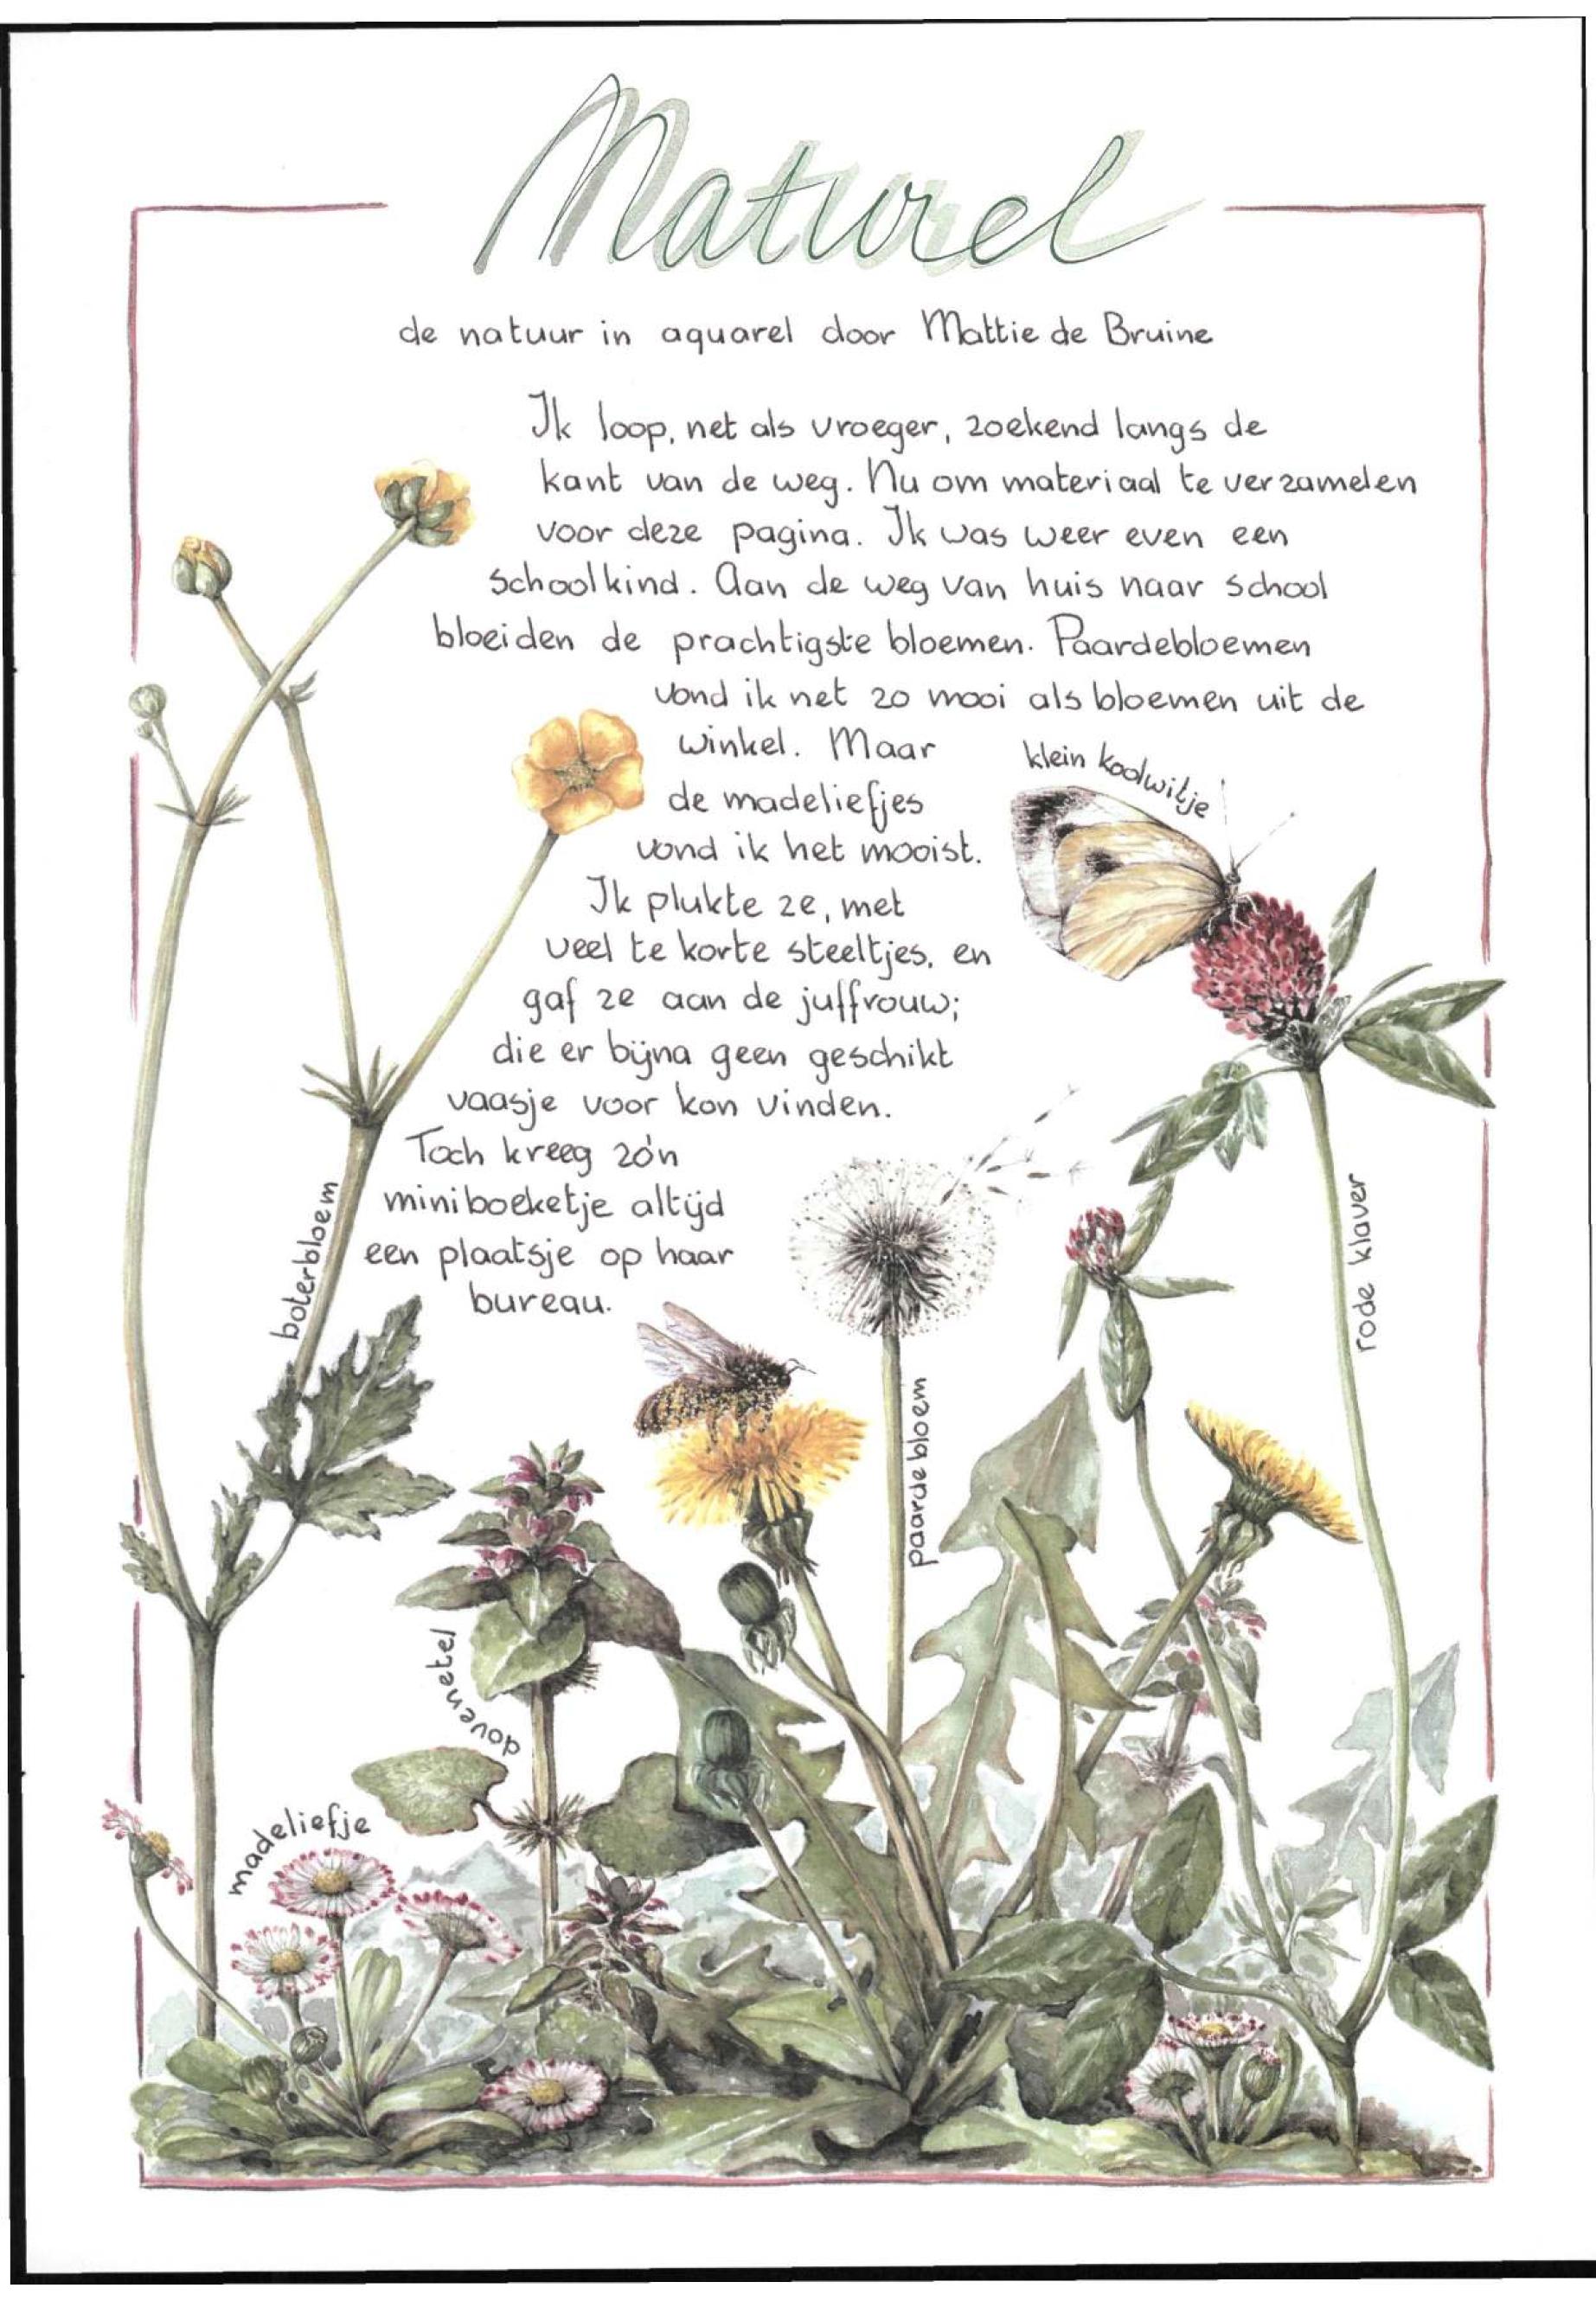 Naturel
de natuur in aquarel door Mattie de Bruine
Ik loop, net als vroeger, zoekend langs de
kant van de weg. Nu om materiaal te verzamelen
voor deze pagina. Ik was weer even een
schoolkind. Aan de weg van huis naar school
bloeiden de prachtigste bloemen. Paardebloemen
vond ik net zo mooi als bloemen uit de
winkel. Maar
de madeliefjes
vond ik het mooist.
Ik plukte ze, met
veel te korte steeltjes, en
gaf ze aan de juffrouw;
die er bijna geen geschikt
vaasje voor kon vinden.
Toch kreeg zó'n
miniboeketje altijd
een plaatsje op haar
bureau.
klein koolwitje
boterbloem
rode klaver
paardebloem
dovenetel
madeliefje